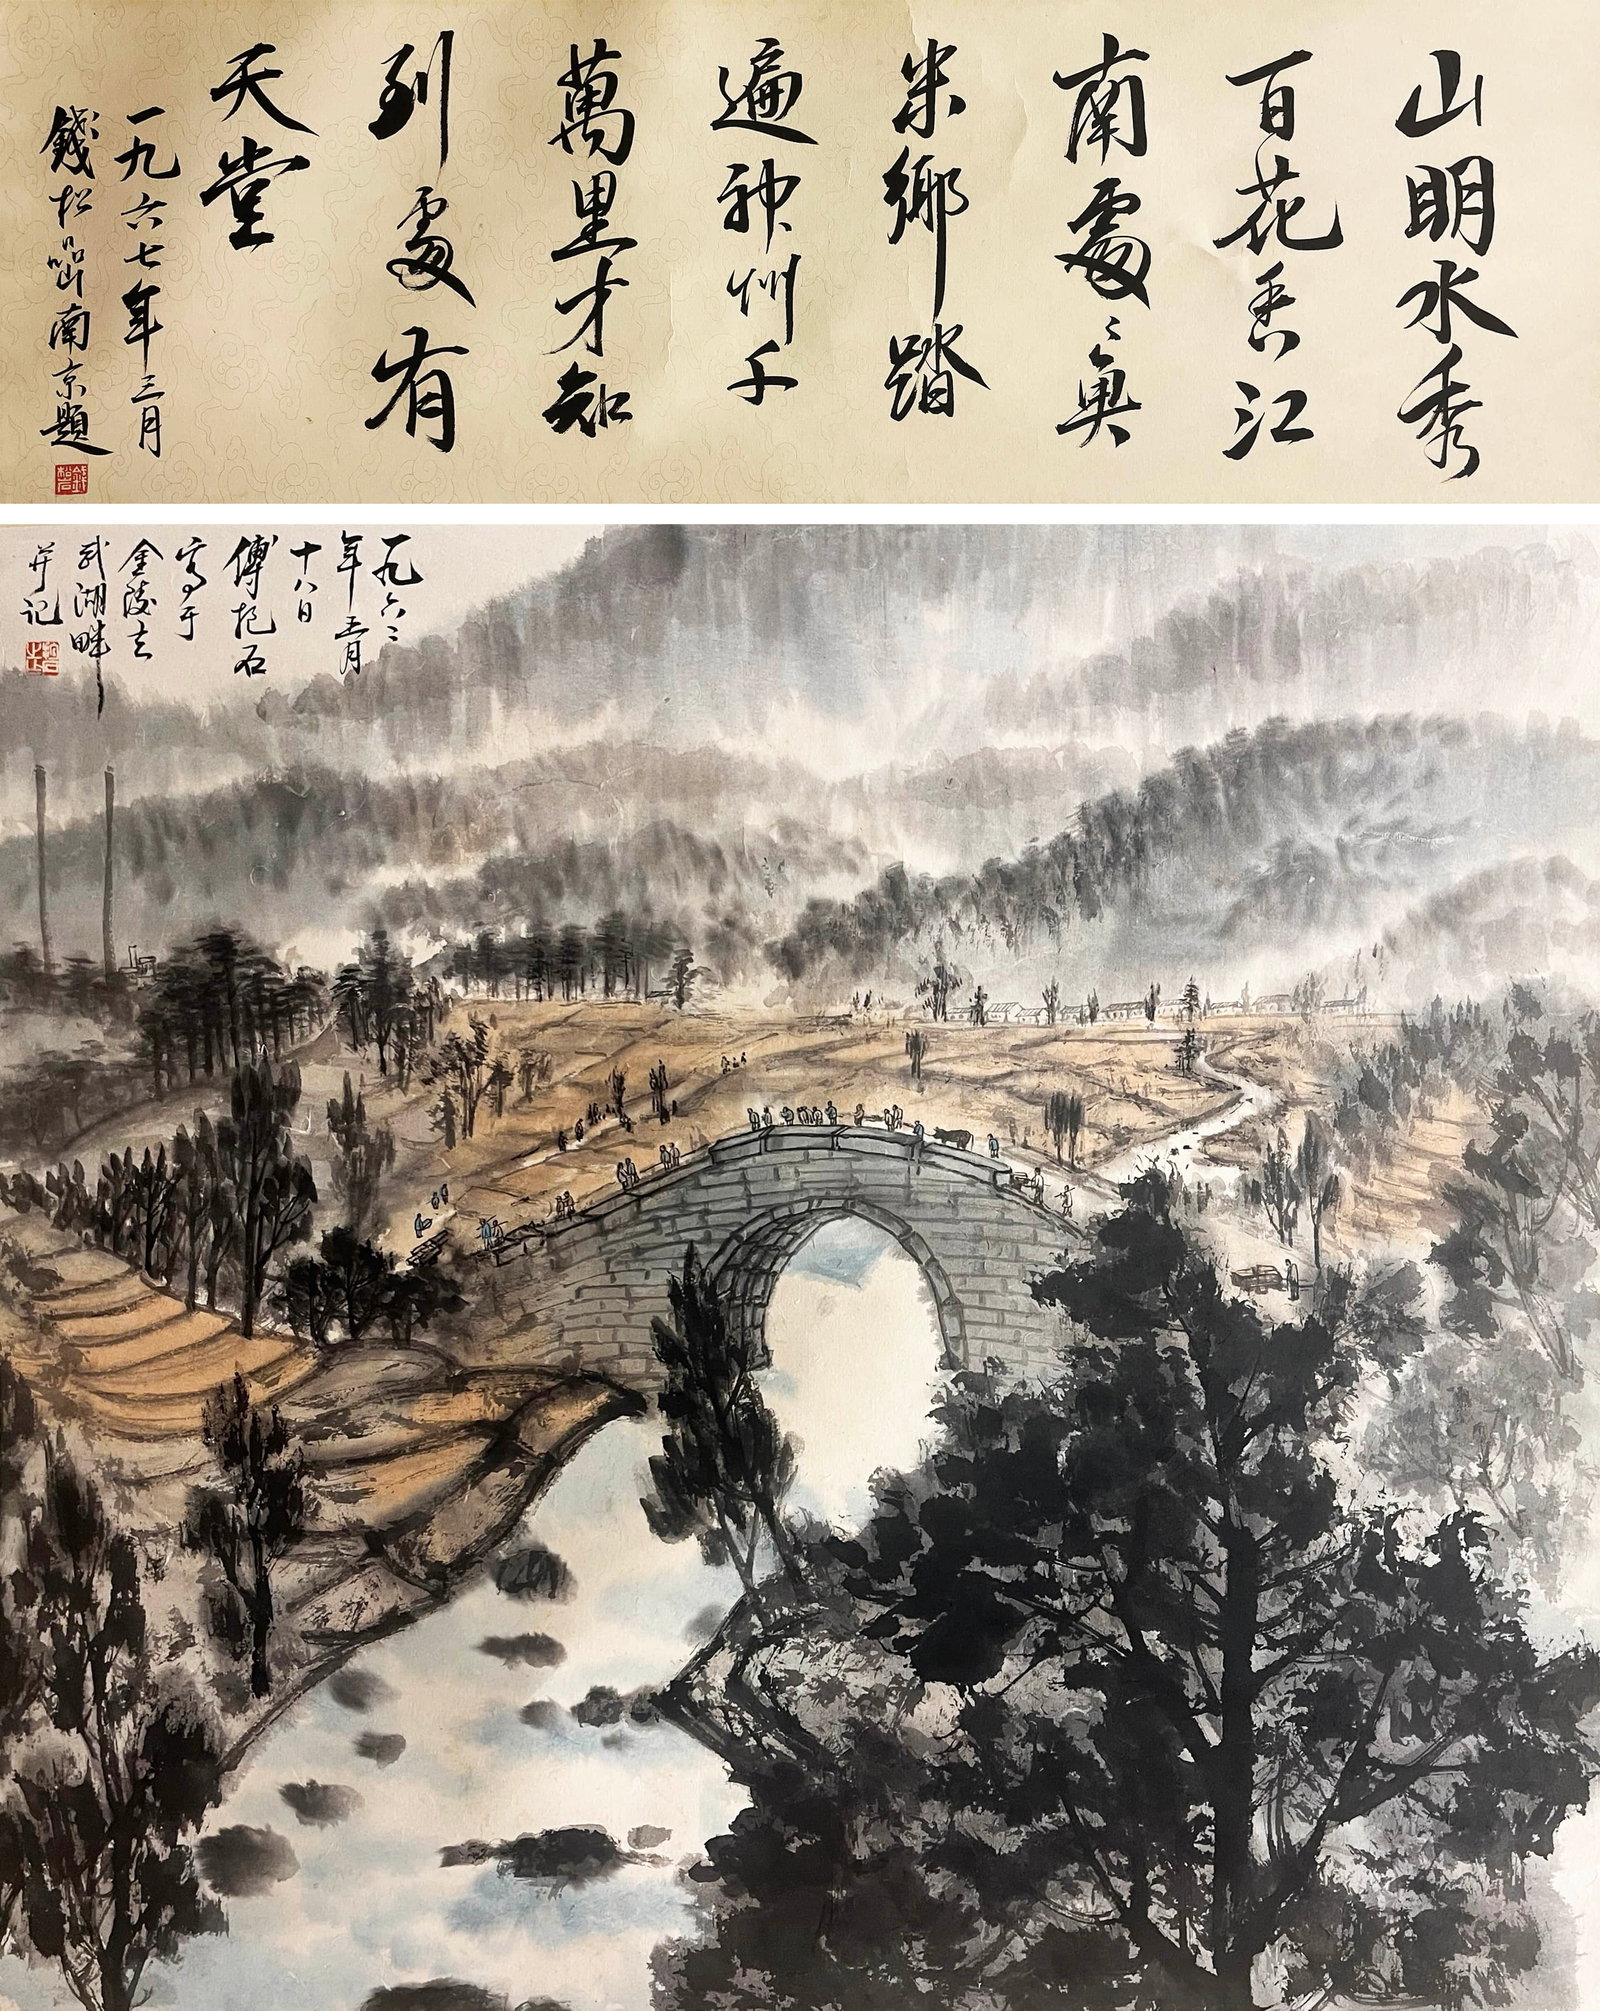 山明水秀
百花香江
南處〻魚
米鄉踏
遍神州千
萬里才知
到處有
天堂
一九六七年三月
錢松喦南京題
一九六二
年三月
十八日
傅抱石
寫于
金陵玄
武湖畔
并记